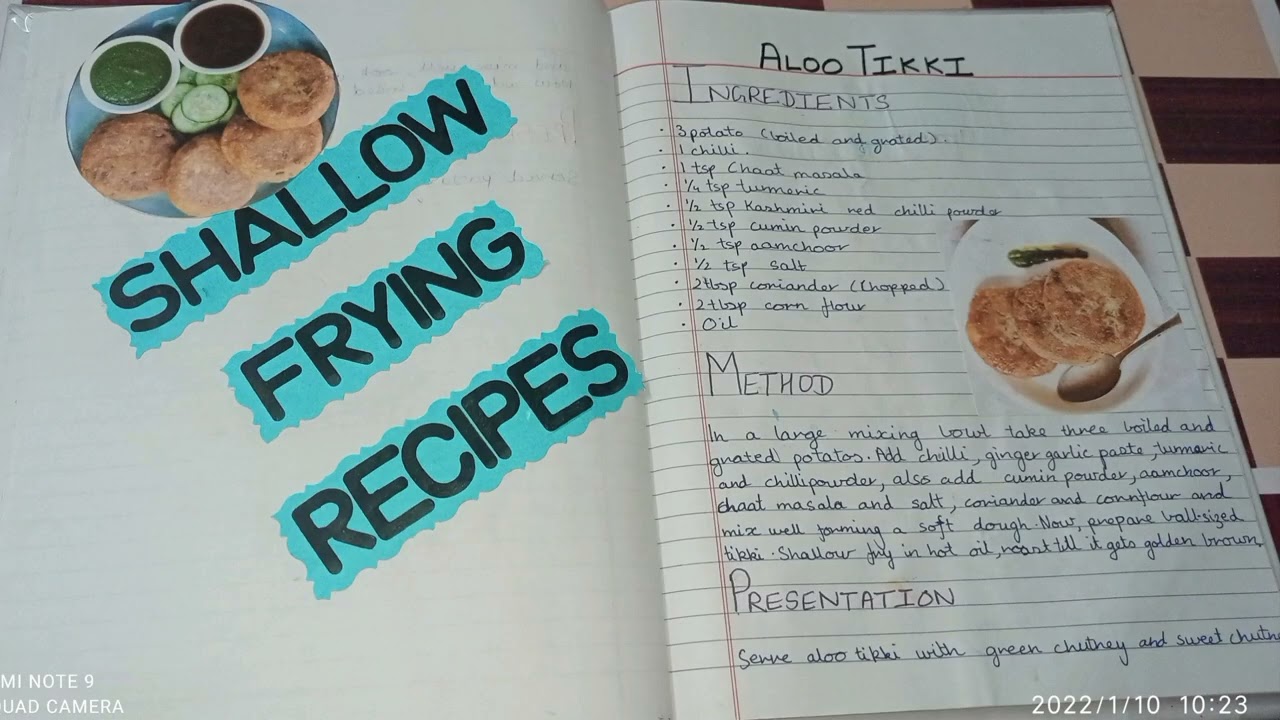 SHALLOW
FRYING
RECIPES
ALOO TIKKI
INGREDIENTS
· 3 potato (boiled and grated).
· 1 chilli.
· 1 tsp Chaat masala
· 1/4 tsp turmeric
· 1/2 tsp Kashmiri red chilli powder
· 1/2 tsp cumin powder
· 1/2 tsp aamchoor
· 1/2 tsp salt
· 2tbsp coriander (Chopped)
· 2tbsp corn flour
· Oil
METHOD
In a large mixing bowl take three boiled and
grated potatos. Add chilli, ginger garlic paste, turmeric
and chillipowder, also add cumin powder, aamchoor,
chaat masala and salt, coriander and cornflour and
mix well forming a soft dough. Now, prepare ball-sized
tikki. Shallow fry in hot oil, roast till it gets golden brown.
PRESENTATION
Serve aloo tikki with green chutney and sweet chutne
MI NOTE 9
QUAD CAMERA
2022/1/10 10:23